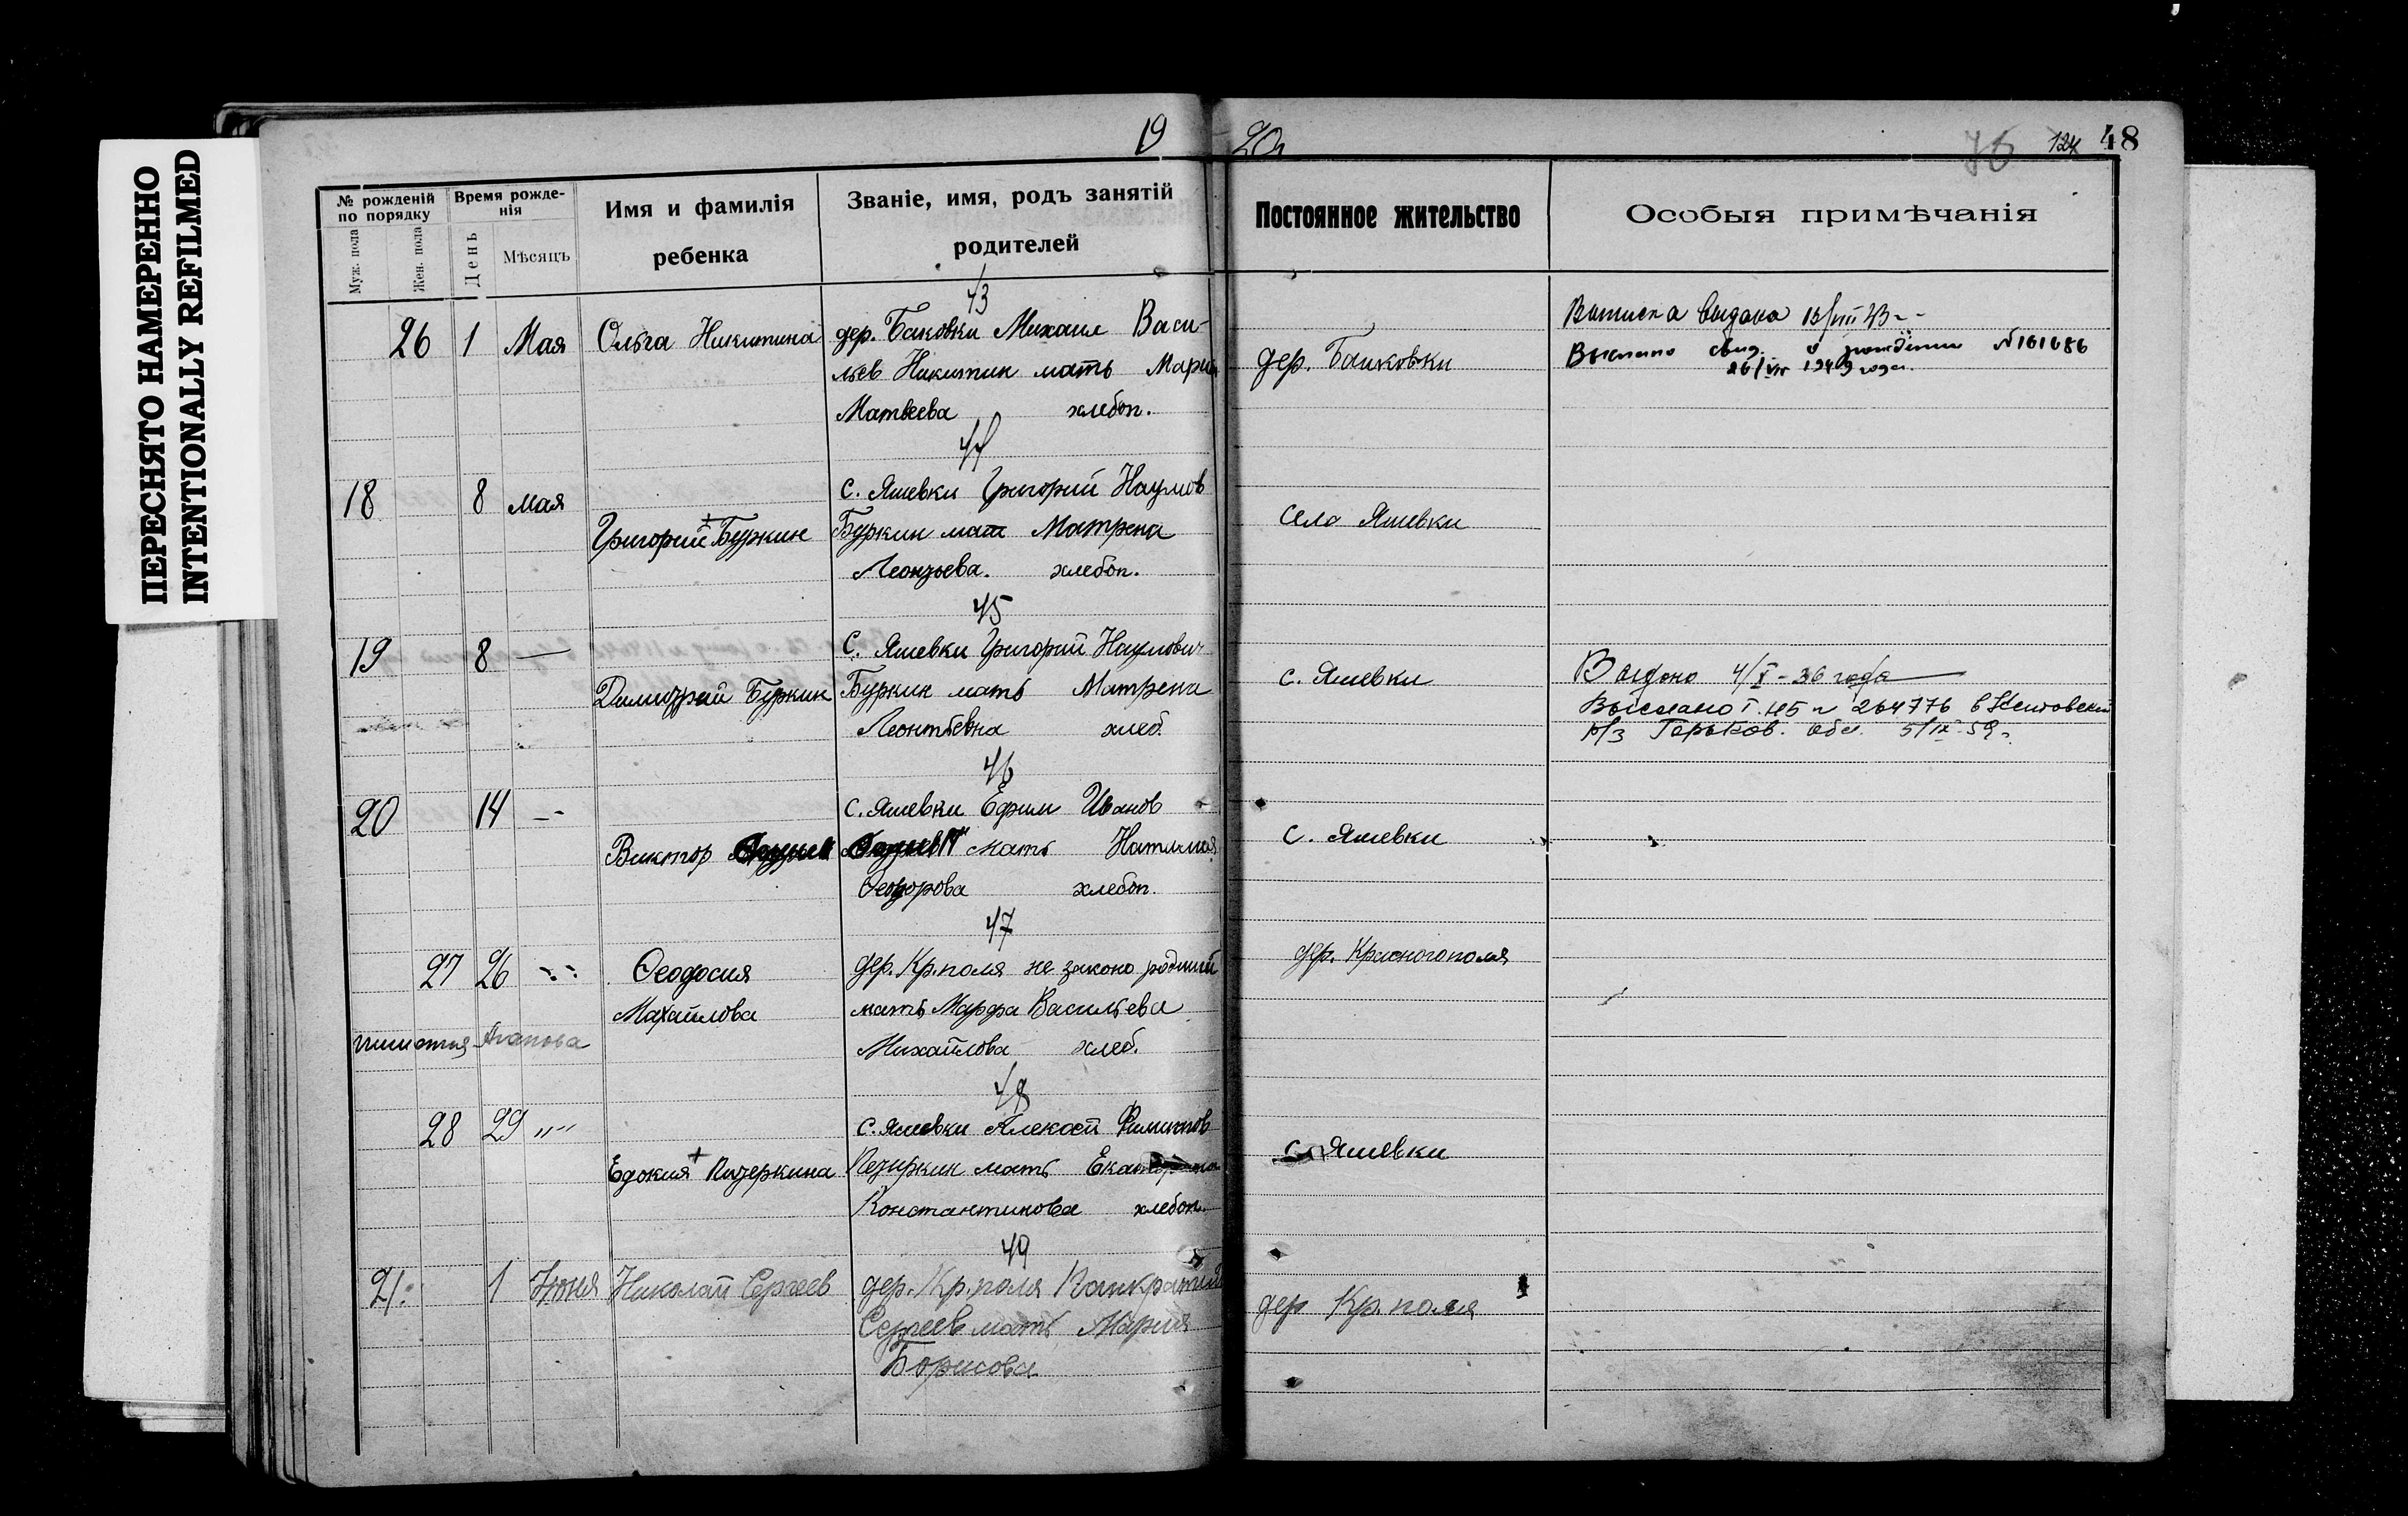 ПЕРЕСНЯТО НАМЕРЕННО
INTENTIONALLY REFILMED
19
20
76
48
№ рожденій по порядку
Муж. пола
Жен. пола
Время рожденія
День
Мѣсяцъ
Имя и фамилія ребенка
Званіе, имя, родъ занятій родителей
Постоянное жительство
Особыя примѣчанія
43
26 1 Мая Ольга Никитина дер. Баковки Михаил Васи-
льев Никитин мать Мария
Матвеева хлебоп.
дер. Баиковки
Выписка выдана 13/VIII 43
Выслано свид. о рождении №161686
26/VII 1949 года.
44
18 8 мая с. Яшевки Григорий Наумов
Григорий + Буркин Буркин мат Матрена
Леонзьева. хлебоп.
село Яшевки
45
19 8 — С. Яшевки Григорий Наумович
Димитрий Буркин Буркин мать Матрена
Леонтьевна хлеб.
с. Яшевки
Выдано 4/X - 36 года
Выслано 264776 в
р/з Горьков. обл. 5/IX 59г.
46
20 14 -- с. Яшевки Ефим Иванов
Виктор мать Наталия
Феодорова хлебоп.
с. Яшевки
47
27 26 Феодосия дер. Кр.поля не законо родший
Михайлова мать Марфа Васильева
Агапова
Михайлова хлеб.
дер. Красногополя
48
28 29 "" с. Яшевки Алексей Филиппов
Едокия + Пизеркина Пезиркин мать Екатерина
Константинова хлебоп.
с. Яшевки
49
21. 1 Июня Николай Сергеев дер. Кр.поля Панкратий
Сергеев мать Мария
Борисова
дер Кр. поля